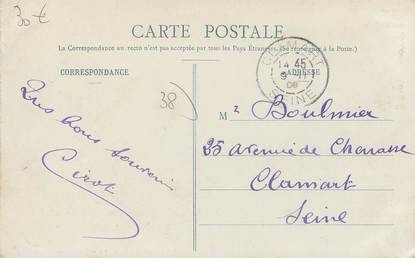 30 €
CARTE POSTALE
La Correspondance au recto n'est pas acceptée par tous les Pays Étrangers. (Se renseigner à la Poste.)
CORRESPONDANCE
ADRESSE
CLAMART
14 45
9 11
08
SEINE
38
Mr Boulmier
35 avenue de
Clamart
Seine
bons souvenirs